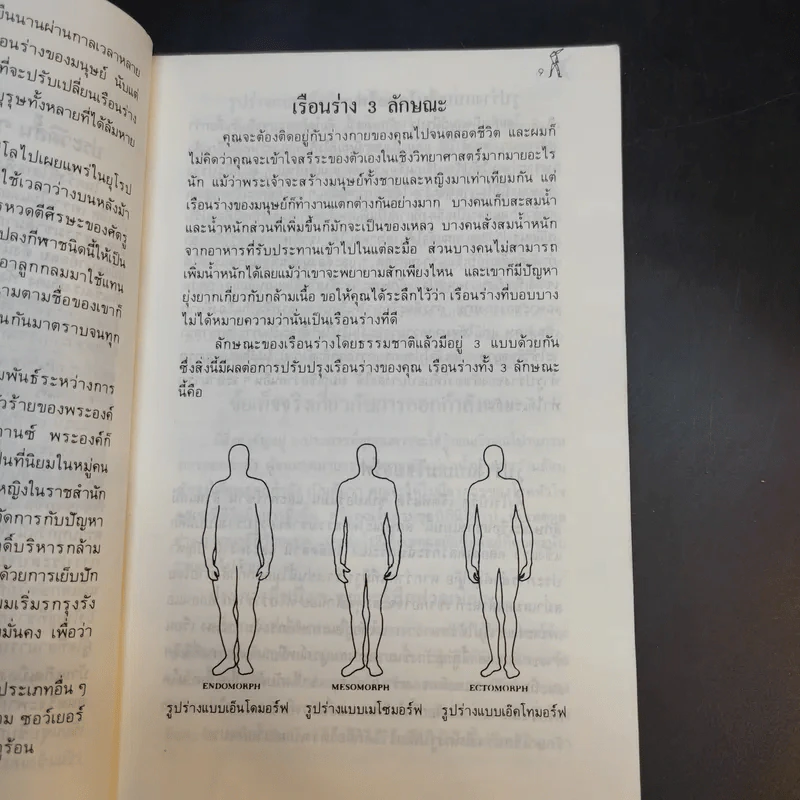 ยืนนานผ่านกาลเวลาหลาย
อนร่างของมนุษย์ นับแต่
ที่จะปรับเปลี่ยนเรือนร่าง
บุรุษทั้งหลายที่ได้ล้มหาย
โลไปเผยแพร่ในยุโรป
ใช้เวลาว่างบนหลังม้า
รหวดตีศีรษะของศัตรู
ปลงกีฬาชนิดนี้ให้เป็น
อาลูกกลมมาใช้แทน
ามตามชื่อของเขาก็
นกันมาตราบจนทุก
มพันธ์ระหว่างการ
ัวร้ายของพระองค์
านซ์ พระองค์ก็
ป็นที่นิยมในหมู่คน
หญิงในราชสำนัก
จัดการกับปัญหา
ดิ์บริหารกล้าม
ด้วยการเย็บปัก
ยมเริ่มรกรุงรัง
งมั่นคง เพื่อว่า
ประเภทอื่น ๆ
าม ซอว์เยอร์
ดูร้อน
๑
เรือนร่าง 3 ลักษณะ
คุณจะต้องติดอยู่กับร่างกายของคุณไปจนตลอดชีวิต และผมก็
ไม่คิดว่าคุณจะเข้าใจสรีระของตัวเองในเชิงวิทยาศาสตร์มากมายอะไร
นัก แม้ว่าพระเจ้าจะสร้างมนุษย์ทั้งชายและหญิงมาเท่าเทียมกัน แต่
เรือนร่างของมนุษย์ก็ทำงานแตกต่างกันอย่างมาก บางคนเก็บสะสมน้ำ
และน้ำหนักส่วนที่เพิ่มขึ้นก็มักจะเป็นของเหลว บางคนสั่งสมน้ำหนัก
จากอาหารที่รับประทานเข้าไปในแต่ละมื้อ ส่วนบางคนไม่สามารถ
เพิ่มน้ำหนักได้เลยแม้ว่าเขาจะพยายามสักเพียงไหน และเขาก็มีปัญหา
ยุ่งยากเกี่ยวกับกล้ามเนื้อ ขอให้คุณได้ระลึกไว้ว่า เรือนร่างที่บอบบาง
ไม่ได้หมายความว่านั่นเป็นเรือนร่างที่ดี
ลักษณะของเรือนร่างโดยธรรมชาติแล้วมีอยู่ 3 แบบด้วยกัน
ซึ่งสิ่งนี้มีผลต่อการปรับปรุงเรือนร่างของคุณ เรือนร่างทั้ง 3 ลักษณะ
นี้คือ
ENDOMORPH MESOMORPH ECTOMORPH
รูปร่างแบบเอ็นโดมอร์ฟ รูปร่างแบบเมโซมอร์ฟ รูปร่างแบบเอ็คโทมอร์ฟ